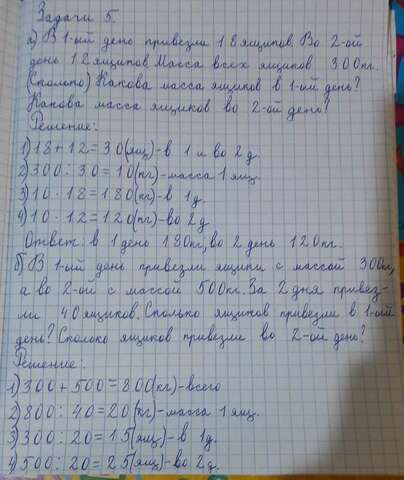 Задачи 5.
а) В 1-ый день привезли 18 ящиков. Во 2-ой
день 12 ящиков. Масса всех ящиков 300кг.
(Сколько) Какова масса ящиков в 1-ой день?
Какова масса ящиков во 2-ой день?
Решение:
1) 18 + 12 = 30 (ящ) - в 1 и во 2 д.
2) 300 : 30 = 10 (кг) - масса 1 ящ.
3) 10 · 18 = 180 (кг) - в 1д.
4) 10 · 12 = 120 (кг) - во 2д
Ответ: в 1 день 180кг, во 2 день 120кг.
б) В 1-ый день привезли ящики с массой 300кг,
а во 2-ой с массой 500кг. За 2 дня привез-
ли 40 ящиков. Сколько ящиков привезли в 1-ый
день? Сколько ящиков привезли во 2-ой день?
Решение:
1) 300 + 500 = 800 (кг) - всего
2) 800 : 40 = 20 (кг) - масса 1 ящ.
3) 300 : 20 = 15 (ящ) - в 1д.
4) 500 : 20 = 25 (ящ) - во 2д.